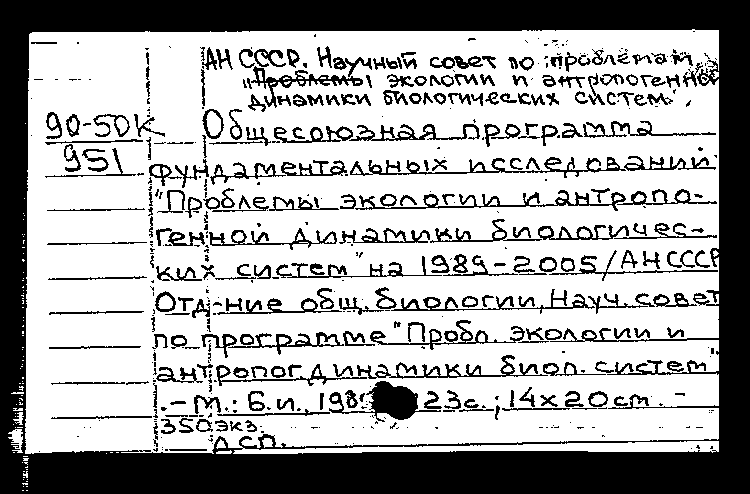 АН СССР. Научный совет по проблемам
"Проблемы экологии и антропогенной
динамики биологических систем".
90-50К
951
Общесоюзная программа
фундаментальных исследований
"Проблемы экологии и антропо-
генной динамики биологичес-
ких систем" на 1989-2005/АН СССР
Отд-ние общ. биологии, Науч. совет
по программе "Пробл. экологии и
антропог. динамики биол. систем"
.-М.: Б.и., 198 23с.; 14х20см. -
350экз.
ДСП.